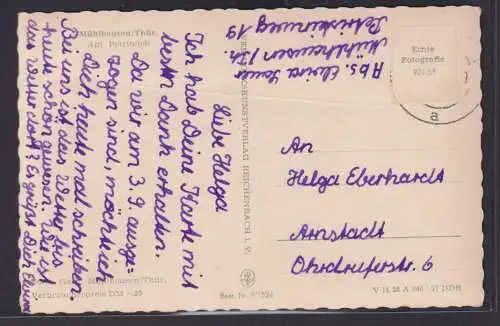 Mühlhausen/Thür.
Am Petriteich
Abs. Elvira
Mühlhausen / Th.
Petristeinweg 19
Liebe Helga
Ich hab Deine Karte mit
besten Dank erhalten.
Da wir am 3.9 umge-
zogen sind, möchte ich
Dich heute mal schreiben
Bei uns ist das Wetter bis
heute schön gewesen. Wie ist
das Wetter dort? Es grüßt Dich Elvira
Mühlhausen/Thür.
Verbraucherpreis DM
KUNSTVERLAG REICHENBACH I. V.
Best. Nr.
Echte
Fotografie
a
An
Helga Eberhardt
Arnstadt
Ohrdruferstr. 6
V 14 28 A 246 57 DDR